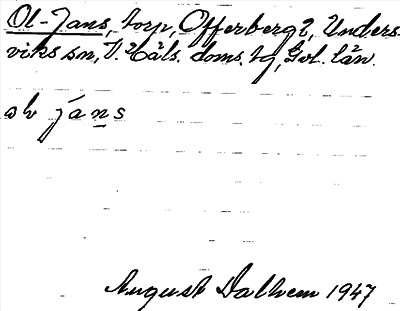 Ol-Jans, torp, Offerberg 2, Unders-
viks sn, V. Häls. doms. tg, Gvl. län.
ol jáns
August Dalhem 1947